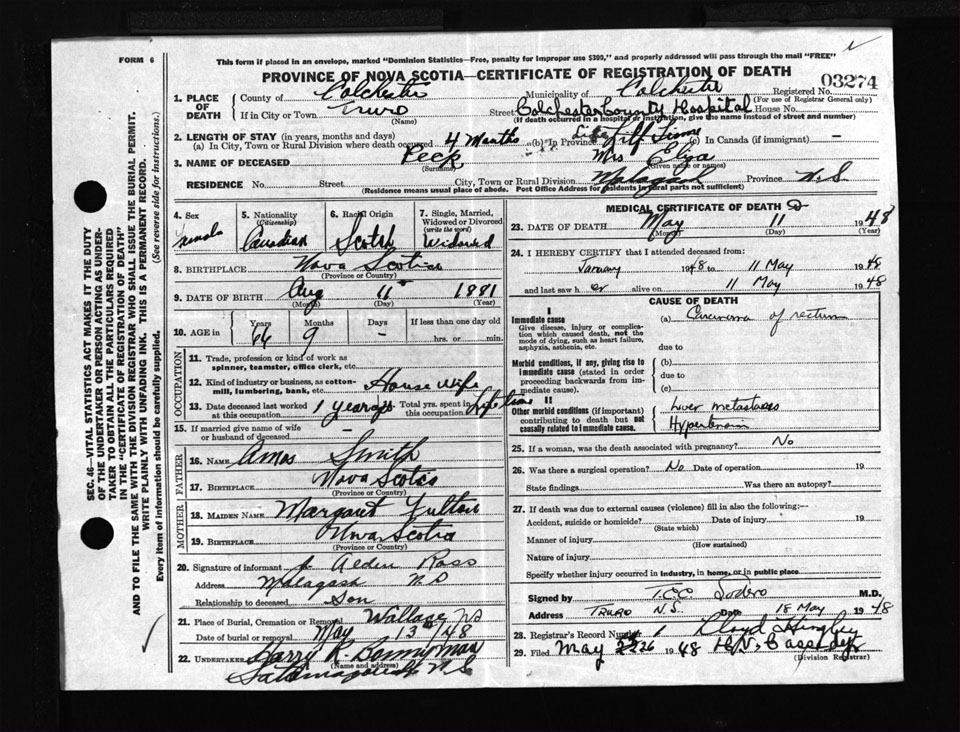 FORM 6
This form if placed in an envelope, marked "Dominion Statistics—Free, penalty for improper use $300," and properly addressed will pass through the mail "FREE"
PROVINCE OF NOVA SCOTIA—CERTIFICATE OF REGISTRATION OF DEATH
03274
1. PLACE OF DEATH
County of Colchester Municipality of Colchester Registered No.
(For use of Registrar General only)
If in City or Town Truro (Name) Street Colchester County Hospital House No.
(If death occurred in a hospital or institution, give the name instead of street and number)
2. LENGTH OF STAY (in years, months and days)
(a) In City, Town or Rural Division where death occurred 4 Months (b) In Province Life Time (c) In Canada (if immigrant)
3. NAME OF DECEASED Peck (Surname) Mrs Eliza (Given name or names)
RESIDENCE No. Street City, Town or Rural Division Malagash Province N.S.
(Residence means usual place of abode. Post Office Address for residents in rural parts not sufficient)
4. Sex female
5. Nationality (Citizenship) Canadian
6. Racial Origin Scotch
7. Single, Married, Widowed or Divorced (write the word) Widowed
8. BIRTHPLACE Nova Scotia
(Province or Country)
9. DATE OF BIRTH Aug 11 1881
(Month) (Day) (Year)
10. AGE in Years 66 Months 9 Days – If less than one day old hrs. or min.
OCCUPATION
11. Trade, profession or kind of work as spinner, teamster, office clerk, etc.
12. Kind of industry or business, as cotton-mill, lumbering, bank, etc. House wife
13. Date deceased last worked at this occupation 1 year ago Total yrs. spent in this occupation Life time
15. If married give name of wife or husband of deceased –
FATHER
16. NAME Amos Smith
17. BIRTHPLACE Nova Scotia
(Province or Country)
MOTHER
18. MAIDEN NAME Margaret Fulton
19. BIRTHPLACE Nova Scotia
(Province or Country)
20. Signature of informant Alden Ross
Address Malagash
Relationship to deceased Son
21. Place of Burial, Cremation or Removal Wallace NS
Date of burial or removal May 13th/48
22. UNDERTAKER Harry R.
(Name and address)
Tatamagouche N.S.
MEDICAL CERTIFICATE OF DEATH
23. DATE OF DEATH May 11 1948
(Month) (Day) (Year)
24. I HEREBY CERTIFY that I attended deceased from:
January 1948 to 11 May 1948
and last saw her alive on 11 May 1948
CAUSE OF DEATH
I
Immediate cause (a) Carcinoma of rectum
Give disease, injury or complication which caused death, not the mode of dying, such as heart failure, asphyxia, asthenia, etc.
due to
Morbid conditions, if any, giving rise to immediate cause (stated in order proceeding backwards from immediate cause)
(b)
due to
(c)
II
Other morbid conditions (if important) contributing to death but not causally related to immediate cause.
Liver metastases
25. If a woman, was the death associated with pregnancy? No
26. Was there a surgical operation? No Date of operation 19
State findings Was there an autopsy?
27. If death was due to external causes (violence) fill in also the following:—
Accident, suicide or homicide? Date of injury 19
(State which)
Manner of injury
(How sustained)
Nature of injury
Specify whether injury occurred in industry, in home, or in public place
Signed by T.C.C. Sodero M.D.
Address TRURO N.S. Date 18 May 1948
28. Registrar's Record Number 1 Lloyd Hingley
29. Filed May 26 1948
(Division Registrar)
SEC. 46—VITAL STATISTICS ACT MAKES IT THE DUTY
OF THE UNDERTAKER OR PERSON ACTING AS UNDER-
TAKER TO OBTAIN ALL THE PARTICULARS REQUIRED
IN THE "CERTIFICATE OF REGISTRATION OF DEATH"
AND TO FILE THE SAME WITH THE DIVISION REGISTRAR WHO SHALL ISSUE THE BURIAL PERMIT.
WRITE PLAINLY WITH UNFADING INK. THIS IS A PERMANENT RECORD.
Every item of information should be carefully supplied. (See reverse side for instructions.)